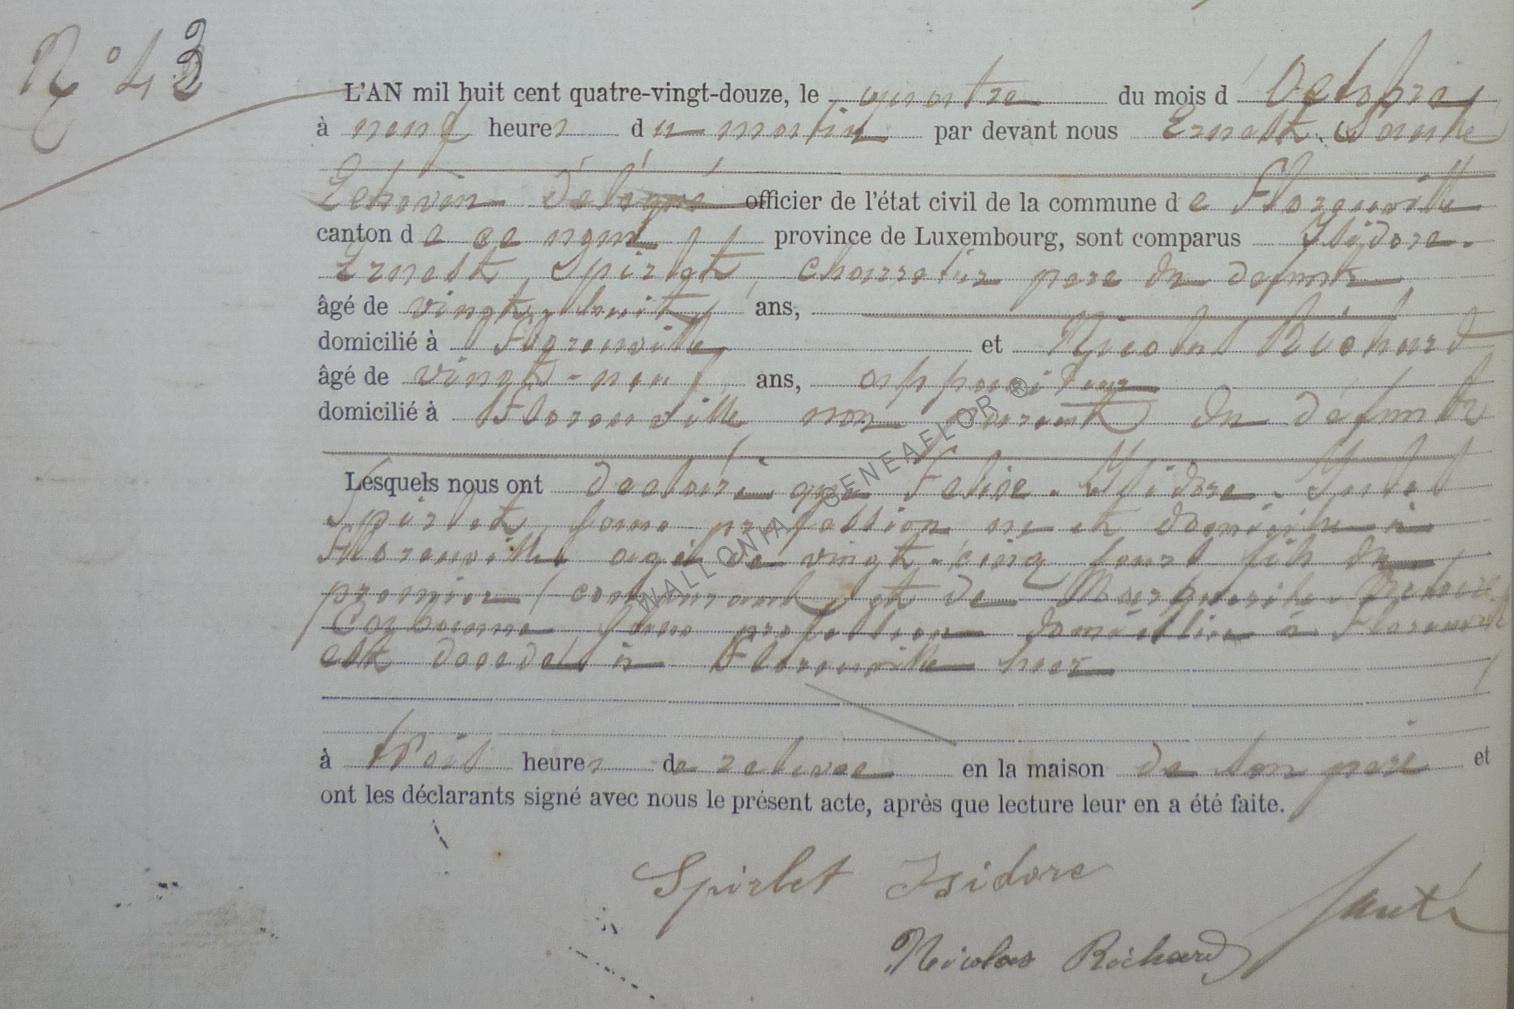 N° 43
L'AN mil huit cent quatre-vingt-douze, le quatre du mois d'Octobre
à neuf heures du matin par devant nous Ernest Santé
Echevin Délégué officier de l'état civil de la commune de Florenville
canton de ce nom province de Luxembourg, sont comparus Isidore-
Ernest Spirlet, charretier pere du defunt
âgé de vingt-huit ans,
domicilié à Florenville et Nicolas Richard
âgé de vingt-neuf ans, appariteur
domicilié à Florenville non parent du défunt
Lesquels nous ont déclaré que Felise-Isidore-Jules
Spirlet sans profession né et domicilié à
Florenville agé de vingt-cinq jours fils du
premier comparant et de Marguerite
sans profession domiciliée à Florenville
est decedé à Florenville hier
à trois heures de relevee en la maison de son pere et
ont les déclarants signé avec nous le présent acte, après que lecture leur en a été faite.
Spirlet Isidore
Santé
Nicolas Richard
WALLONIA GENEAFLOR ©